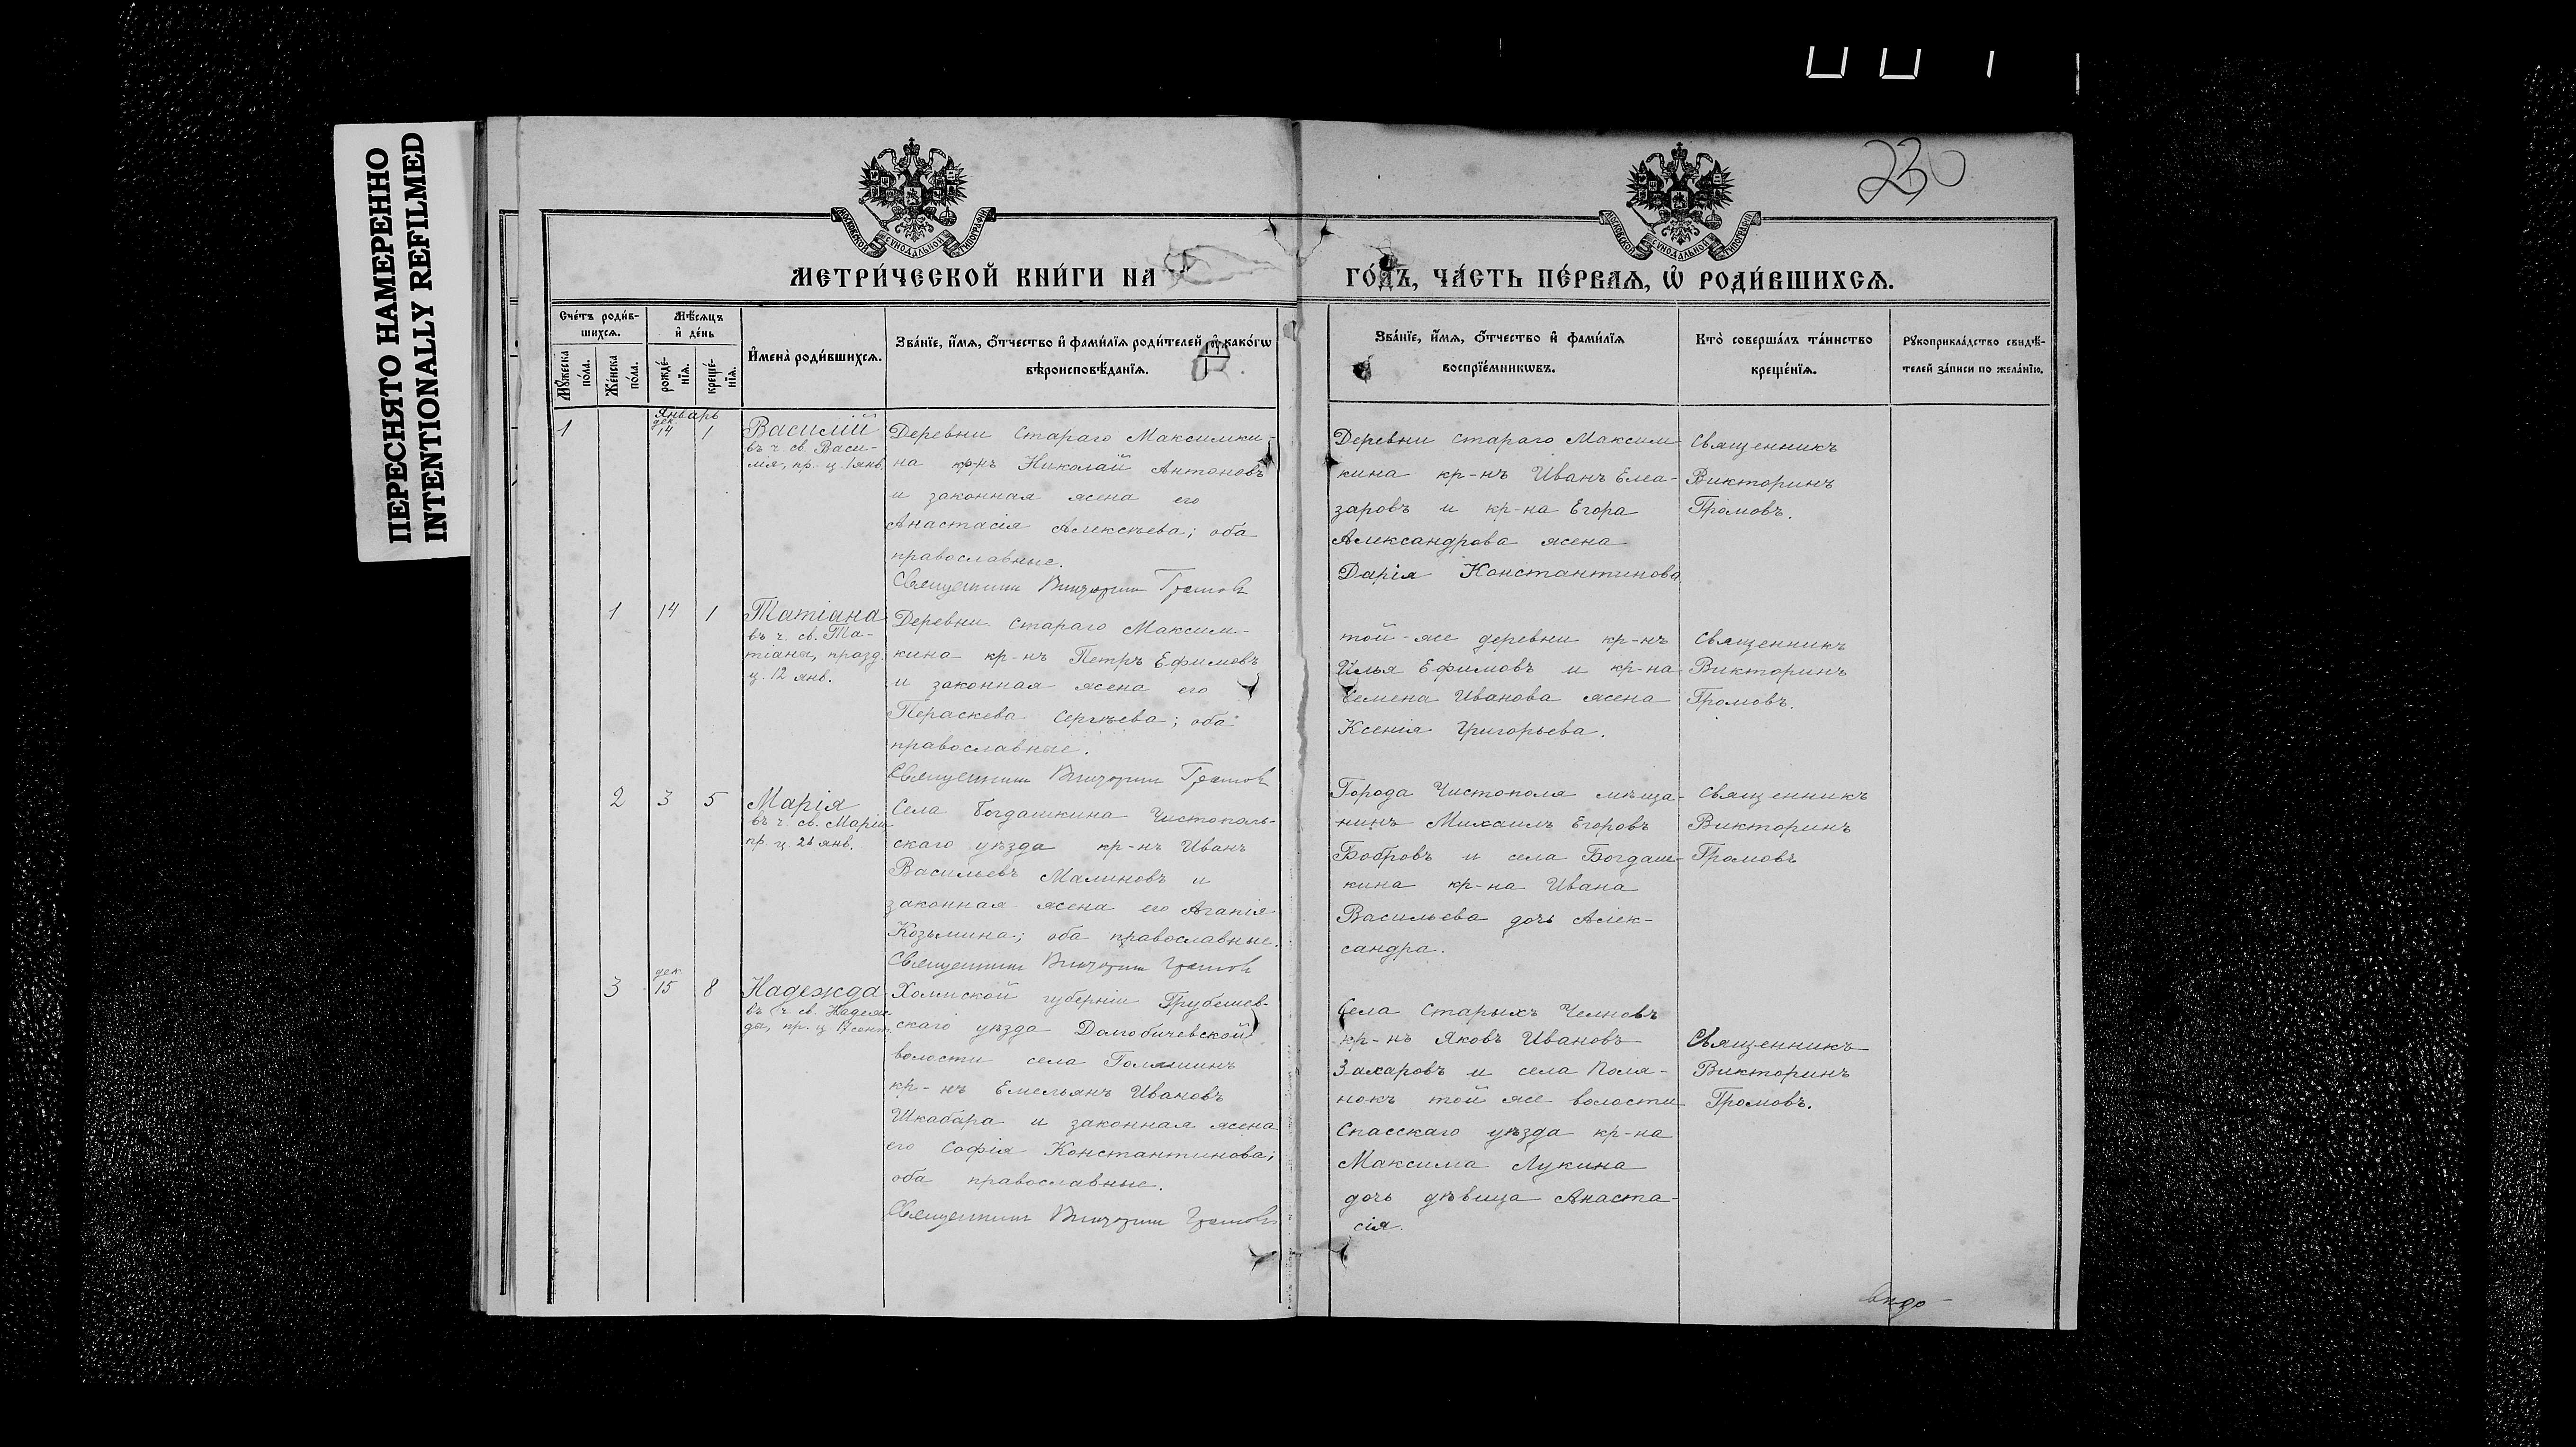 ПЕРЕСНЯТО НАМЕРЕННО
INTENTIONALLY REFILMED
230
МОСКОВСКОЙ СѴНОДАЛЬНОЙ ТИПОГРАФІИ
МОСКОВСКОЙ СѴНОДАЛЬНОЙ ТИПОГРАФІИ
МЕТРИ́ЧЕСКОЙ КНИ́ГИ НА
ГО́ДЪ, ЧА́СТЬ ПЕ́РВАѦ, Ѽ РОДИ́ВШИХСѦ.
Сче́тъ роди́в-
шихсѧ.
Мꙋ́жеска
по́ла.
Же́нска
по́ла.
Мѣ́сѧцъ
и҆ де́нь
рожде́-
нїѧ.
креще́-
нїѧ.
И҆мена̀ роди́вшихсѧ.
Зва́нїе, и҆́мѧ, ѻ҆́тчество и҆ фами́лїѧ роди́телей и҆ како́гѡ
вѣроисповѣ́данїѧ.
Зва́нїе, и҆́мѧ, ѻ҆́тчество и҆ фами́лїѧ
воспрїе́мникѡвъ.
Кто̀ соверша́лъ та́инство
креще́нїѧ.
Рꙋкоприкла́дство свидѣ́-
телей за́писи по жела́нїю.
Январь
1
дек.
14 1
Василій
въ ч. св. Васи-
лія, пр. ц. 1 янв.
Деревни Стараго Максимки-
на кр-нъ Николай Антоновъ
и законная жена его
Анастасія Алексѣева; оба
православные.
Священникъ Викторинъ Громовъ
Деревни Стараго Максим-
кина кр-нъ Иванъ Елеа-
заровъ и кр-на Егора
Александрова жена
Дарія Константинова.
Священникъ
Викторинъ
Громовъ.
1 14 1
Татіана
въ ч. св. Та-
тіаны, празд.
ц. 12 янв.
Деревни Стараго Максим-
кина кр-нъ Петръ Ефимовъ
и законная жена его
Параскева Сергѣева; оба
православные.
Священникъ Викторинъ Громовъ
той-же деревни кр-нъ
Илья Ефимовъ и кр-на
Семена Иванова жена
Ксенія Григорьева.
Священникъ
Викторинъ
Громовъ.
2 3 5
Марія
въ ч. св. Маріи
пр. ц. 26 янв.
Села Богдашкина Чистополь-
скаго уѣзда кр-нъ Иванъ
Васильевъ Малиновъ и
законная жена его Агапія
Козьмина; оба православные.
Священникъ Викторинъ Громовъ
Города Чистополя мѣща-
нинъ Михаилъ Егоровъ
Бобровъ и села Богдаш-
кина кр-на Ивана
Васильева дочь Алек-
сандра.
Священникъ
Викторинъ
Громовъ
3
дек.
15 8
Надежда
въ ч. св. Надеж-
ды, пр. ц. 17 сент.
Холмской губерніи Грубешев-
скаго уѣзда Долгобичевской
волости села
кр-нъ Емельянъ Ивановъ
Шкабара и законная жена
его Софія Константинова;
оба православные.
Священникъ Викторинъ Громовъ
Села Старыхъ Челновъ
кр-нъ Яковъ Ивановъ
Захаровъ и села Поля-
нокъ той же волости
Спасскаго уѣзда кр-на
Максима Лукина
дочь дѣвица Анаста-
сія.
Священникъ
Викторинъ
Громовъ.